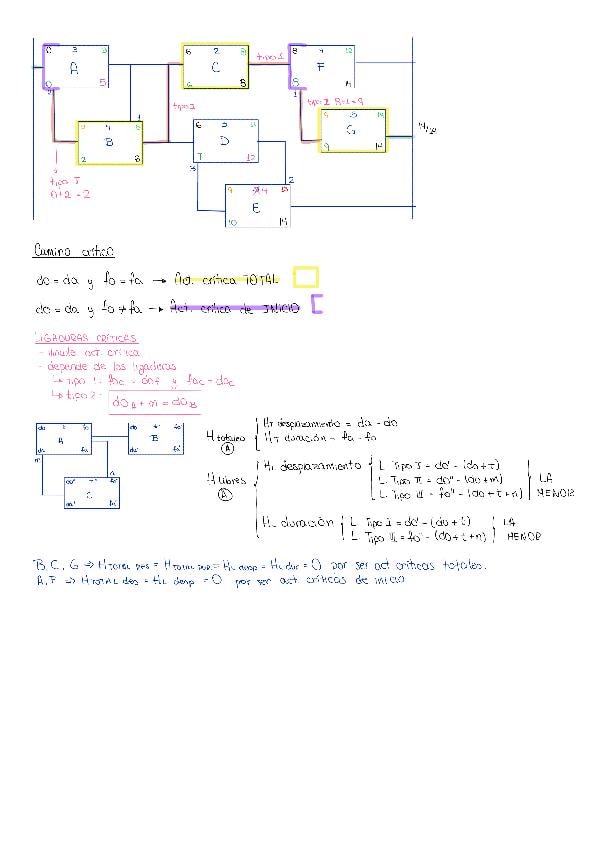 0 3 3
A
0 5
6 2 8
C
6 8
tipo 1
8 4 12
F
8 14
2
1
tipo 1
1
tipo I 8+1=9
2 4 6
B
2 6
6 5 11
D
7 12
9 5
G
9 14
14/
tipo I
0+2=2
3
2
9 4
E
10 14
Camino crítico
do = da y fo = fa → Act. crítica TOTAL
do = da y fo ≠ fa → Act. crítica de INICIO
LIGADURAS CRÍTICAS
- vincule act. crítica
- depende de las ligaduras
↳ tipo 1:
↳ tipo 2: do A + m = do B
do t fo
A
da fa
do' t' fo'
B
da' fa'
m
n
do" t" fo"
C
da" fa"
H totales (A)
HT desplazamiento = da - do
HT duración = fa - fo
H libres (A)
HL desplazamiento
L Tipo I = do' - (do + t)
L Tipo II = do" - (do + m)
L Tipo III = fo" - (do + t + n)
LA MENOR
HL duración
L Tipo I = do' - (do + t)
L Tipo III = fo" - (do + t + n)
LA MENOR
B, C, G ⇒ H TOTAL DES = H TOTAL DUR = HL desp = HL dur = 0 por ser act críticas totales.
A, F ⇒ H TOTAL des = HL desp = 0 por ser act. críticas de inicio